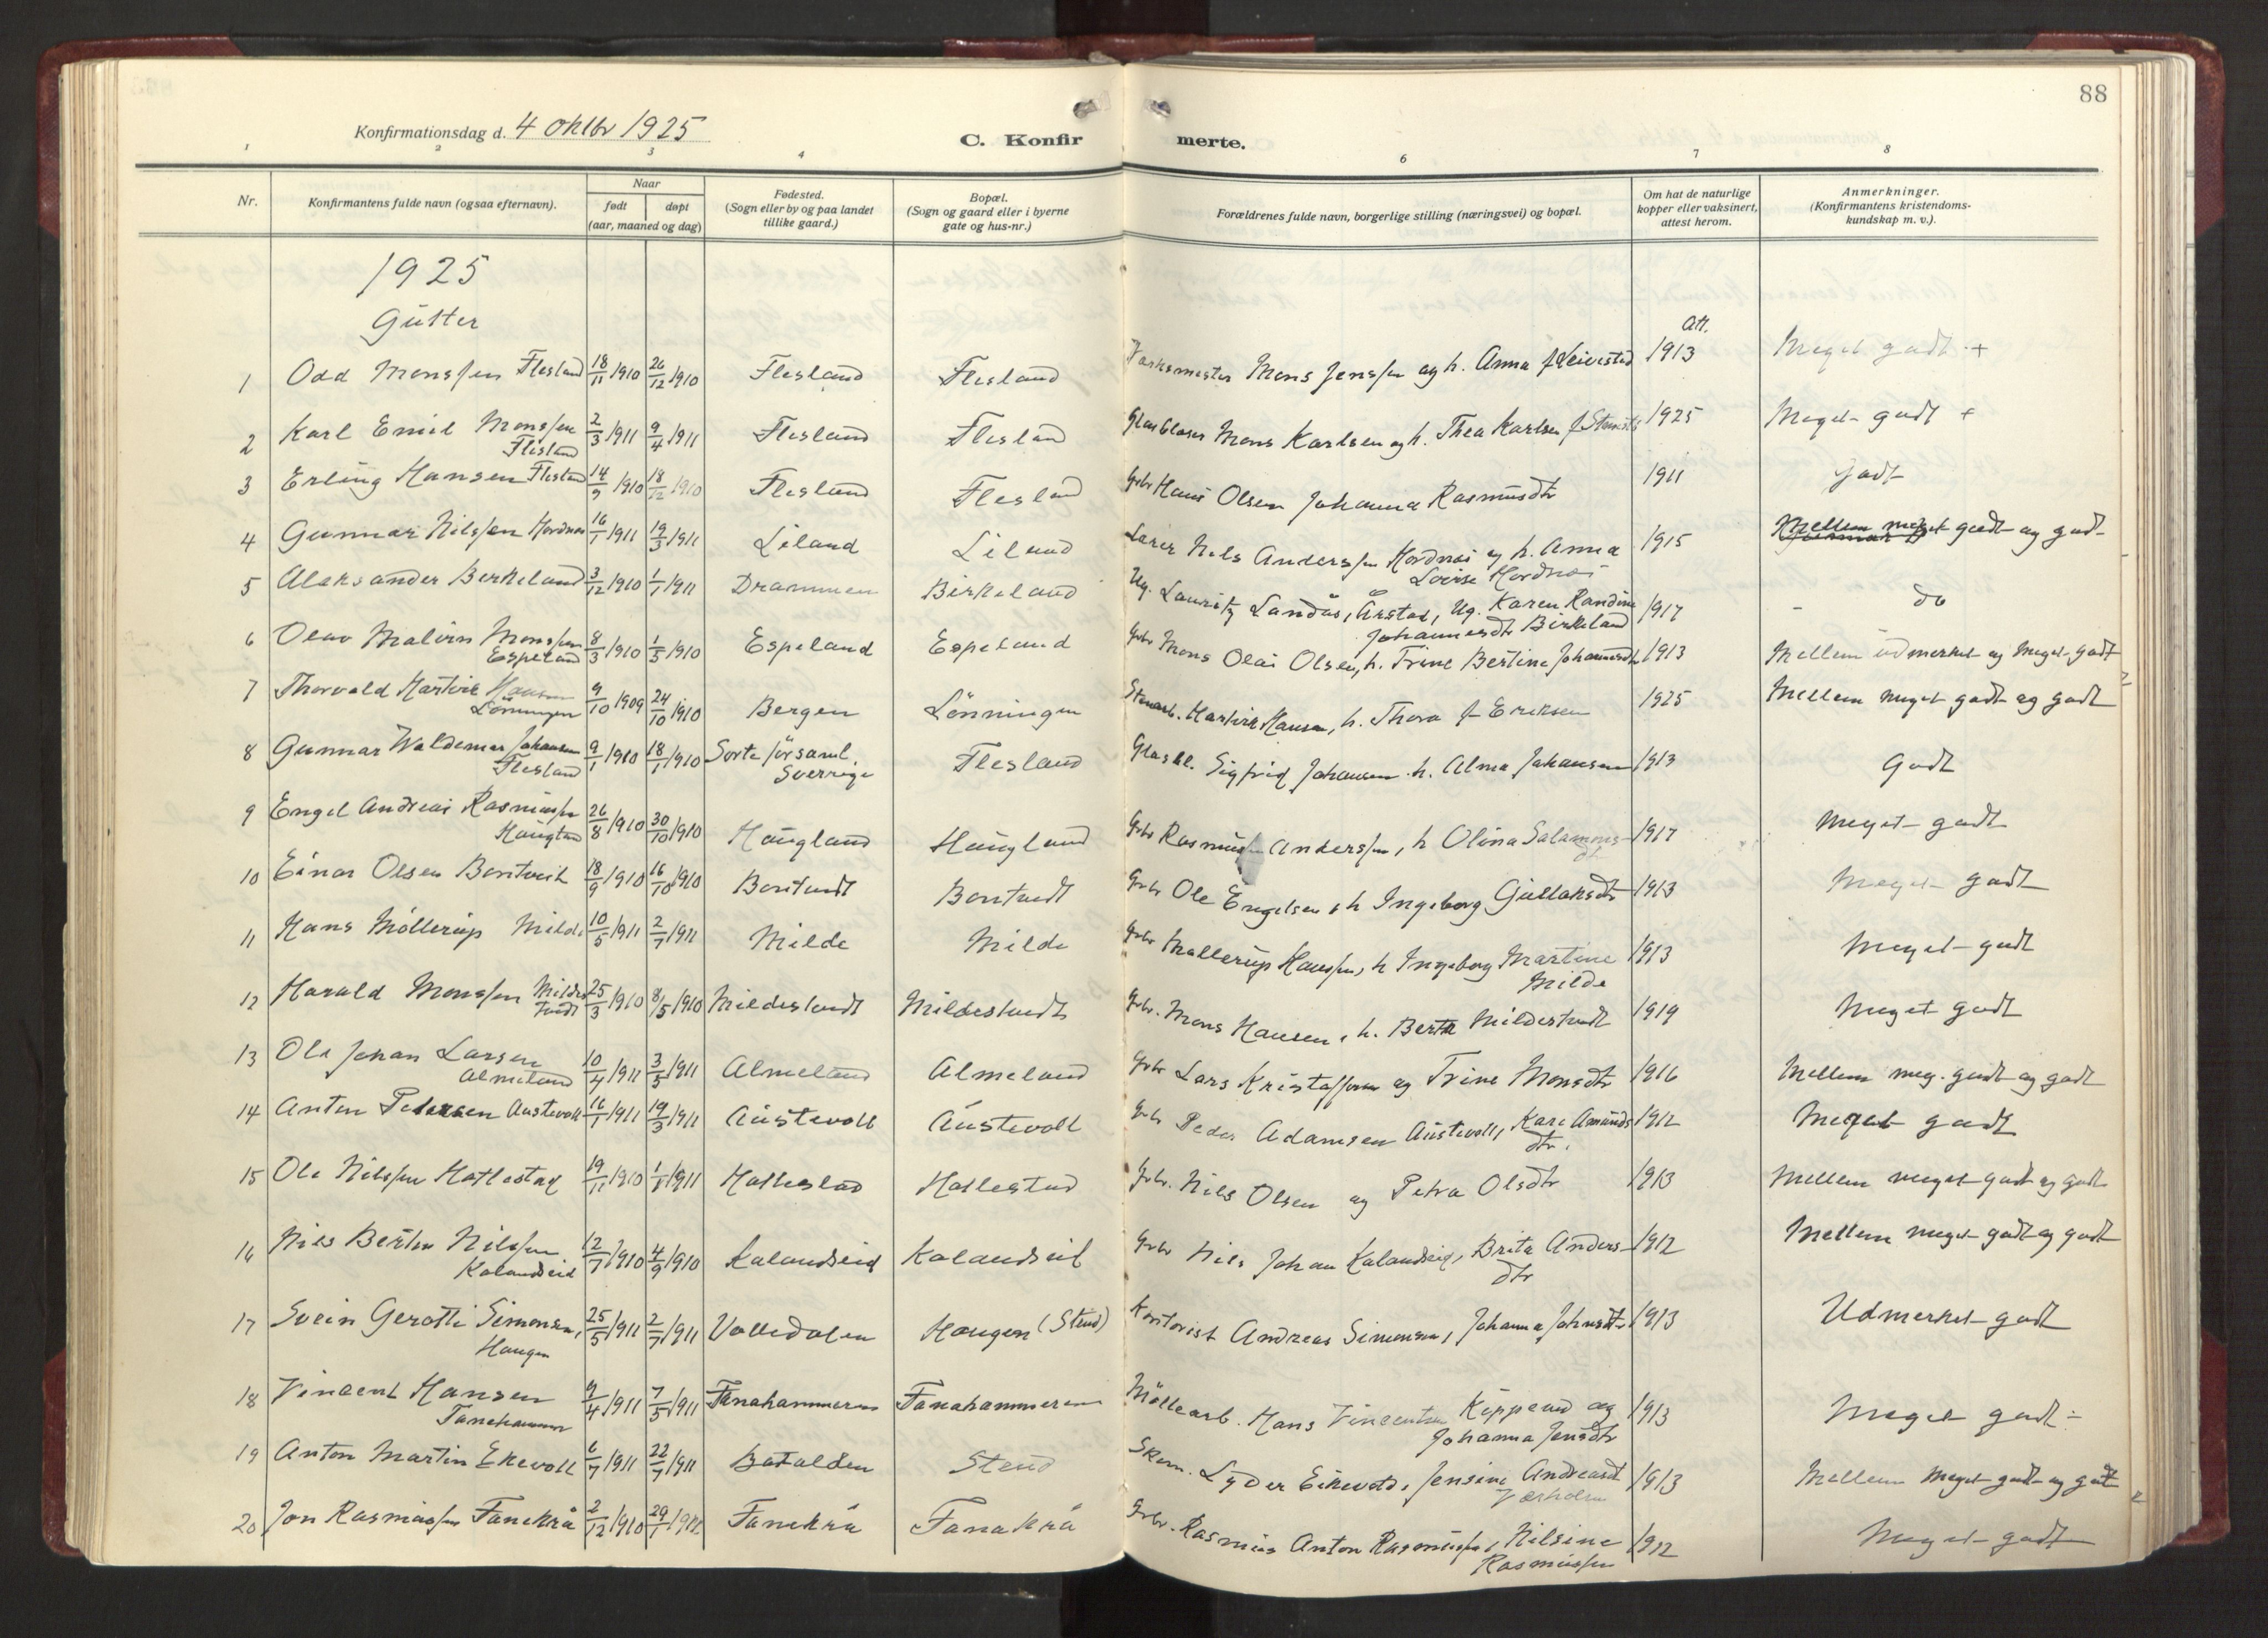 88
Konfirmationsdag d. 4 oktbr 1925
C. Konfir merte.
1 2 3 4 6 7 8
Nr. Konfirmantens fulde navn (ogsaa efternavn). Naar født døpt (aar, maaned og dag) Fødested. (Sogn eller by og paa landet tillike gaard.) Bopæl. (Sogn og gaard eller i byerne gate og hus-nr.) Forældrenes fulde navn, borgerlige stilling (næringsvei) og bopæl. Om hat de naturlige kopper eller vaksinert, attest herom. Anmerkninger. (Konfirmantens kristendoms- kundskap m. v.).
1925
Gutter
Att.
1 Odd Monssen Flesland 18/11 1910 26/12 1910 Flesland Flesland Mons Jenssen og h. Anna f. 1913 Meget godt +
2 Karl Emil Monssen Flesland 2/3 1911 9/4 1911 Flesland Flesland Glasblaser Mons Karlsen og h. Thea Karlsen f. 1925 Meget godt +
3 Erling Hansen Flesland 14/9 1910 18/12 1910 Flesland Flesland Gbr Hans Olsen Johanna Rasmusdtr 1911 Godt
4 Gunnar Nilssen Hordnes 16/1 1911 19/3 1911 Liland Liland Lærer Nils Anderssen Hordnæs og h. Anna Lovise Hordnæs 1915 Mellem meget godt og godt
5 Aleksander Berkeland 3/12 1910 1/1 1911 Drammen Birkeland Ug. Lauritz Landås, Årstad, Ug. Karen Randine Johannesdtr Birkeland 1917 - do
6 Olav Malvin Monssen Espeland 8/3 1910 1/5 1910 Espeland Espeland Gbr Mons Olai Olsen, h. Trine Bertine Johannesdtr 1913 Mellem udmerket og meget godt
7 Thorvald Hartvik Hansen Lönningen 9/10 1909 24/10 1910 Bergen Lönningen Stenarb. Hartvik Hansen, h. Thora f. Eriksen 1925 Mellem meget godt og godt
8 Gunnar Waldemar Johansen Flesland 9/1 1910 18/1 1910 Sorte församl. Sverrige Flesland Glasbl. Sigfrid Johansen h. Alma Johansen 1913 Godt
9 Engel Andreas Rasmussen Haugland 26/8 1910 30/10 1910 Haugland Haugland Gbr Rasmus Anderssen, h Olina Salamonsdtr 1917 Meget godt
10 Einar Olsen Bontveit 18/9 1910 16/10 1910 Bontvedt Bontvedt Gbr Ole Engelsen, h Ingeborg Gullaksdtr 1913 Meget godt
11 Hans Möllerup Milde 10/5 1911 2/7 1911 Milde Milde Gbr Mallerup Hanssen, h Ingeborg Martine Milde 1913 Meget godt
12 Harald Monssen Mildestvedt 25/3 1910 8/5 1910 Mildestvedt Mildestvedt Gbr. Mons Hansen, h. Berta Mildestvedt 1919 Meget godt
13 Ole Johan Larsen Almeland 10/4 1911 3/5 1911 Almeland Almeland Gbr Lars Kristoffersen og Trine Monsdtr 1916 Mellem meg. godt og godt
14 Anton Petersen Austevoll 16/1 1911 19/3 1911 Austevoll Austevoll Gbr Peder Adamsen Austevoll, Kari Amundsdtr. 1912 Meget godt
15 Ole Nilssen Hatlestad 19/11 1910 1/1 1911 Hatlestad Hatlestad Gbr. Nils Olsen og Petra Olsdtr 1913 Mellem meget godt og godt
16 Nils Bertin Nilssen Kalandseid 12/7 1910 4/9 1910 Kalandseid Kalandseid Gbr Nils Johan Kalandseid, Brita Andersdtr 1912 Mellem meget godt og godt
17 Svein Gerotti Simonsen, Haugen 25/5 1911 2/7 1911 Valledalen Haugen (Stend) Kontorist Andreas Simonsen, Johanna Johnsdtr 1913 Udmerket godt
18 Vincent Hansen Fanehammer 9/4 1911 7/5 1911 Fanahammeren Fanahammeren Möllearb. Hans Vincentsen Kippend og Johanna Jensdtr 1913 Meget godt
19 Anton Martin Ekevoll 6/7 1911 22/7 1911 Batalden Stend Skom. Lyder Eikevold, Jensine Andreasdt 1913 Mellem meget godt og godt
20 Jon Rasmussen Fanekrå 2/12 1910 29/1 1911 Fanekrå Fanakrå Gbr. Rasmus Anton Rasmussen, Nilsine Rasmussen 1912 Meget godt